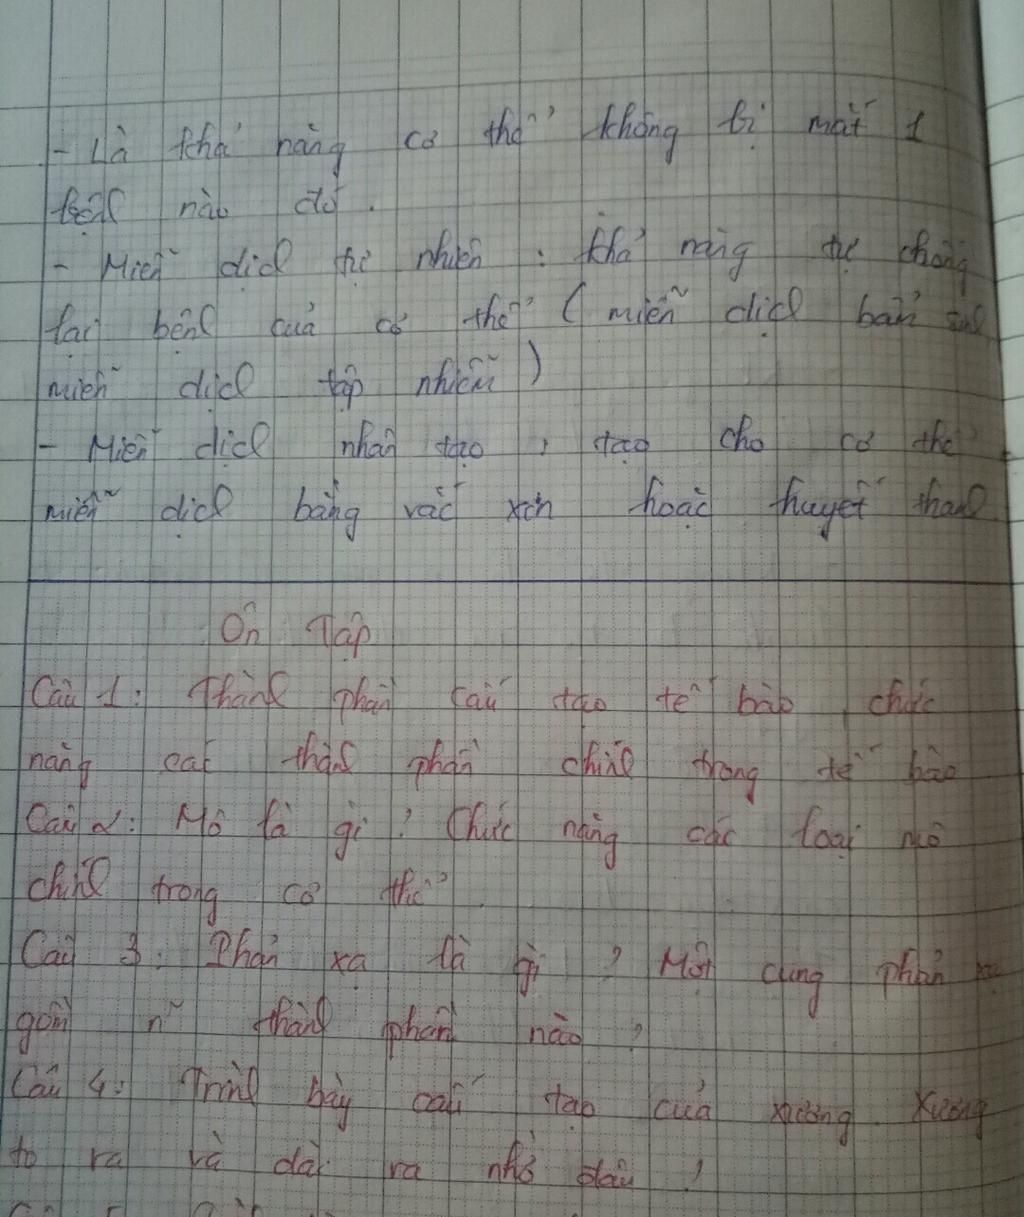 - Là khả năng cơ thể không bị mắc 1
bệnh nào đó.
- Miễn dịch tự nhiên : khả năng tự chống
lại bệnh của cơ thể ( miễn dịch bẩm sinh
miễn dịch tập nhiễm )
- Miễn dịch nhân tạo : tạo cho cơ thể
miễn dịch bằng vắc xin hoặc huyết thanh
Ôn Tập
Câu 1: Thành phần cấu tạo tế bào, chức
năng các thành phần chính trong tế bào
Câu 2: Mô là gì ? Chức năng các loại mô
chính trong cơ thể
Câu 3: Phản xạ là gì ? Một cung phản xạ
gồm n~ thành phần nào ?
Câu 4: Trình bày cấu tạo của xương. Xương
to ra và dài ra nhờ đâu ?